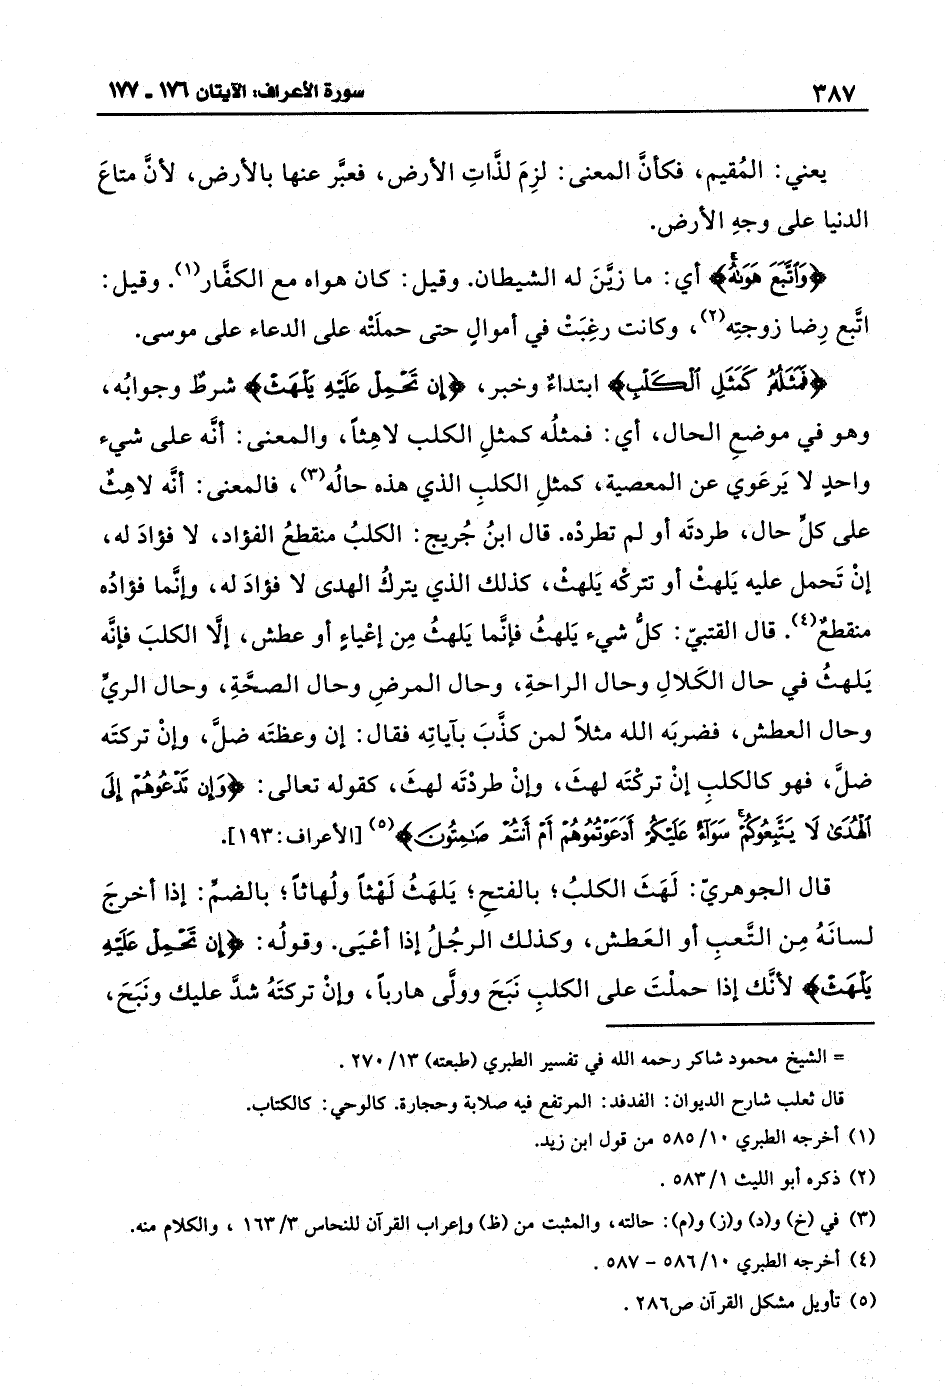 سورة الأعراف: الآيتان ١٧٦ ـ ١٧٧
٣٨٧
يعني: المُقيم، فكأنَّ المعنى: لزِمَ لذَّاتِ الأرض، فعبَّر عنها بالأرض، لأنَّ متاعَ
الدنيا على وجهِ الأرض.
﴿وَاتَّبَعَ هَوَىٰهُ﴾ أي: ما زيَّنَ له الشيطان. وقيل: كان هواه مع الكفَّار(١). وقيل:
اتَّبع رِضا زوجتِه(٢)، وكانت رغِبَتْ في أموالٍ حتى حملَتْه على الدعاء على موسى.
﴿فَمَثَلُهُۥ كَمَثَلِ ٱلْكَلْبِ﴾ ابتداءٌ وخبر، ﴿إِن تَحْمِلْ عَلَيْهِ يَلْهَثْ﴾ شرطٌ وجوابُه،
وهو في موضعِ الحال، أي: فمثلُه كمثلِ الكلب لاهِثاً، والمعنى: أنَّه على شيء
واحدٍ لا يَرعَوي عن المعصية، كمثلِ الكلبِ الذي هذه حالُه(٣)، فالمعنى: أنَّه لاهِثٌ
على كلِّ حال، طردتَه أو لم تطردْه. قال ابنُ جُريج: الكلبُ منقطعُ الفؤاد، لا فؤادَ له،
إنْ تَحمل عليه يَلهثْ أو تتركْه يَلهثْ، كذلك الذي يتركُ الهدى لا فؤادَ له، وإنَّما فؤادُه
منقطعٌ(٤). قال القتبيّ: كلُّ شيء يَلهثُ فإنَّما يَلهثُ مِن إعْياءٍ أو عطش، إلَّا الكلبَ فإنَّه
يَلهثُ في حال الكَلالِ وحال الراحةِ، وحال المرضِ وحال الصحَّةِ، وحال الريِّ
وحال العطش، فضربَه الله مثلاً لمن كذَّبَ بآياتِه فقال: إن وعظتَه ضلَّ، وإنْ تركتَه
ضلَّ، فهو كالكلبِ إنْ تركْتَه لهثَ، وإنْ طردْتَه لهثَ، كقوله تعالى: ﴿وَإِن تَدْعُوهُمْ إِلَى
ٱلْهُدَىٰ لَا يَتَّبِعُوكُمْ ۚ سَوَآءٌ عَلَيْكُمْ أَدَعَوْتُمُوهُمْ أَمْ أَنتُمْ صَـٰمِتُونَ﴾(٥) [الأعراف: ١٩٣].
قال الجوهريّ: لَهَثَ الكلبُ؛ بالفتحِ؛ يَلهَثُ لَهْثاً ولُهاثاً؛ بالضمِّ: إذا أخرجَ
لسانَهُ مِن التَّعبِ أو العَطش، وكذلك الرجُلُ إذا أعْيَى. وقولُه: ﴿إِن تَحْمِلْ عَلَيْهِ
يَلْهَثْ﴾ لأنَّك إذا حملْتَ على الكلبِ نَبَحَ وولَّى هارباً، وإنْ تركتَهُ شدَّ عليك ونَبَحَ،
= الشيخ محمود شاكر رحمه الله في تفسير الطبري (طبعته) ١٣/ ٢٧٠ .
قال ثعلب شارح الديوان: الفدفد: المرتفع فيه صلابة وحجارة. كالوحي: كالكتاب.
(١) أخرجه الطبري ١٠/ ٥٨٥ من قول ابن زيد.
(٢) ذكره أبو الليث ١/ ٥٨٣ .
(٣) في (خ) و(د) و(ز) و(م): حالته، والمثبت من (ظ) وإعراب القرآن للنحاس ٣/ ١٦٣ ، والكلام منه.
(٤) أخرجه الطبري ١٠/ ٥٨٦ – ٥٨٧ .
(٥) تأويل مشكل القرآن ص٢٨٦ .